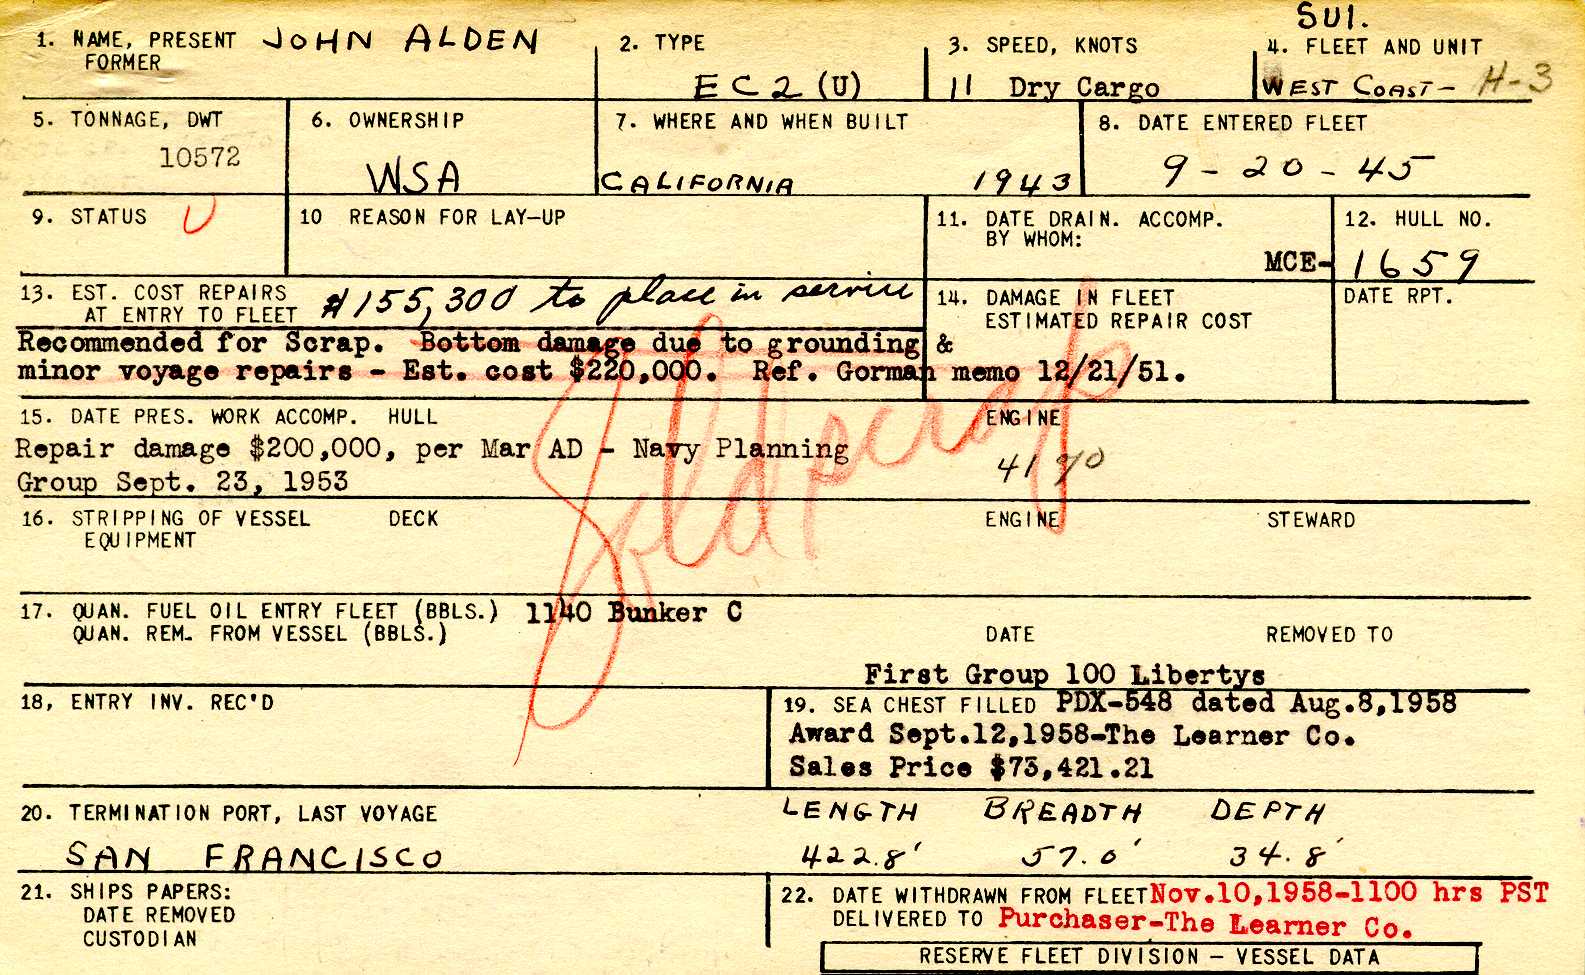 SUI.
1. NAME, PRESENT JOHN ALDEN 2. TYPE 3. SPEED, KNOTS 4. FLEET AND UNIT
FORMER EC2 (U) 11 Dry Cargo WEST COAST- H-3
5. TONNAGE, DWT 6. OWNERSHIP 7. WHERE AND WHEN BUILT 8. DATE ENTERED FLEET
10572 WSA CALIFORNIA 1943 9-20-45
9. STATUS U 10 REASON FOR LAY-UP 11. DATE DRAIN. ACCOMP. 12. HULL NO.
BY WHOM:
MCE- 1659
13. EST. COST REPAIRS $155,300 to place in service 14. DAMAGE IN FLEET DATE RPT.
AT ENTRY TO FLEET ESTIMATED REPAIR COST
Recommended for Scrap. Bottom damage due to grounding &
minor voyage repairs - Est. cost $220,000. Ref. Gorman memo 12/21/51.
15. DATE PRES. WORK ACCOMP. HULL ENGINE
Repair damage $200,000, per Mar AD - Navy Planning 4170
Group Sept. 23, 1953
Sld scrap
16. STRIPPING OF VESSEL DECK ENGINE STEWARD
EQUIPMENT
17. QUAN. FUEL OIL ENTRY FLEET (BBLS.) 1140 Bunker C
QUAN. REM. FROM VESSEL (BBLS.) DATE REMOVED TO
First Group 100 Libertys
18, ENTRY INV. REC'D 19. SEA CHEST FILLED PDX-548 dated Aug.8,1958
Award Sept.12,1958-The Learner Co.
Sales Price $73,421.21
20. TERMINATION PORT, LAST VOYAGE LENGTH BREADTH DEPTH
SAN FRANCISCO 422.8' 57.0' 34.8'
21. SHIPS PAPERS: 22. DATE WITHDRAWN FROM FLEET Nov.10,1958-1100 hrs PST
DATE REMOVED DELIVERED TO Purchaser-The Learner Co.
CUSTODIAN
RESERVE FLEET DIVISION - VESSEL DATA